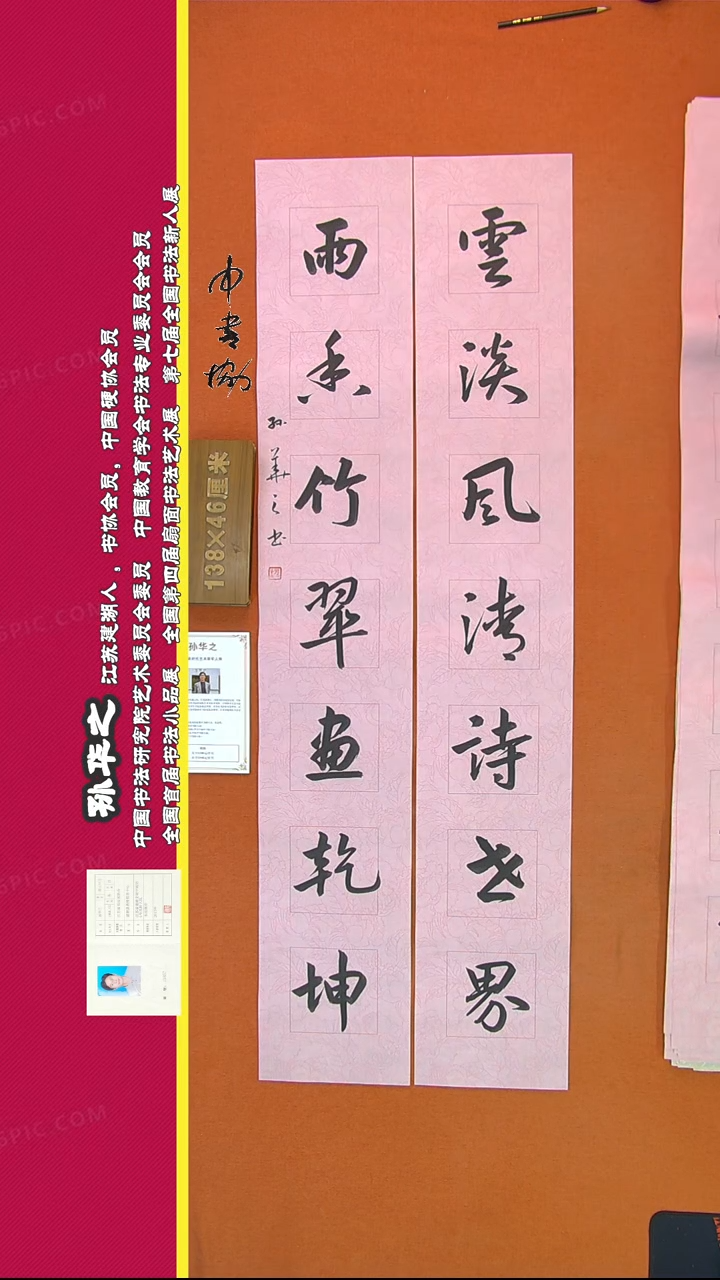 雲淡风清詩世界
雨香竹翠画乾坤
孙華之书
中书协
138×46厘米
孙华之
孙华之 江苏建湖人，书协会员，中国硬协会员
中国书法研究院艺术委员会委员 中国教育学会书法专业委员会会员
全国首届书法小品展 全国第四届扇面书法艺术展 第七届全国书法新人展